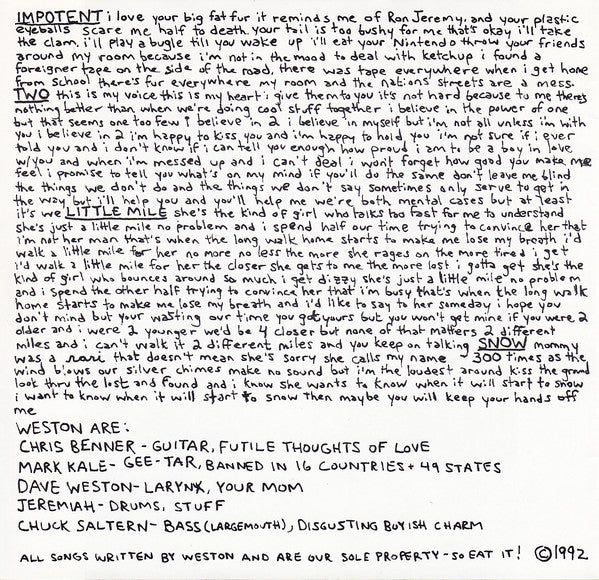 IMPOTENT i love your big fat fur it reminds me of Ron Jeremy. and your plastic
eyeballs scare me half to death. your tail is too bushy for me that's okay i'll take
the clam. i'll play a bugle till you wake up i'll eat your Nintendo throw your friends
around my room because i'm not in the mood to deal with ketchup i found a
foreigner tape on the side of the road, there was tape everywhere when i get home
from school there's fur everywhere my room and the nations streets are a mess.
TWO this is my voice this is my heart i give them to you it's not hard because to me there's
nothing better than when we're doing cool stuff together i believe in the power of one
but that seems one too few i believe in 2 i believe in myself but i'm not all unless i'm with
you i believe in 2 i'm happy to kiss you and i'm happy to hold you i'm not sure if i ever
told you and i don't know if i can tell you enough how proud i am to be a boy in love
w/you and when i'm messed up and i can't deal i wont forget how good you make me
feel i promise to tell you what's on my mind if you'll do the same don't leave me blind
the things we don't do and the things we don't say sometimes only serve to get in
the way but i'll help you and you'll help me we're both mental cases but at least
it's we LITTLE MILE she's the kind of girl who talks too fast for me to understand
she's just a little mile no problem and i spend half our time trying to convince her that
i'm not her man that's when the long walk home starts to make me lose my breath i'd
walk a little mile for her no more no less the more she rages on the more tired i get
i'd walk a little mile for her the closer she gets to me the more lost i gotta get she's the
kind of girl who bounces around so much i get dizzy she's just a little mile no problem
and i spend the other half trying to convince her that i'm busy that's when the long walk
home starts to make me lose my breath and i'd like to say to her someday i hope you
don't mind but your wasting our time you got yours but you won't get mine if you were 2
older and i were 2 younger we'd be 4 closer but none of that matters 2 different
miles and i can't walk it 2 different miles and you keep on talking SNOW mommy
was a sari that doesn't mean she's sorry she calls my name 300 times as the
wind blows our silver chimes make no sound but i'm the loudest around kiss the ground
look thru the lost and found and i know she wants to know when it will start to snow
i want to know when it will start to snow then maybe you will keep your hands off
me
WESTON ARE:
CHRIS BENNER - GUITAR, FUTILE THOUGHTS OF LOVE
MARK KALE - GEE-TAR, BANNED IN 16 COUNTRIES + 49 STATES
DAVE WESTON - LARYNX, YOUR MOM
JEREMIAH - DRUMS, STUFF
CHUCK SALTERN - BASS (LARGEMOUTH), DISGUSTING BOYISH CHARM
ALL SONGS WRITTEN BY WESTON AND ARE OUR SOLE PROPERTY - SO EAT IT! ©1992